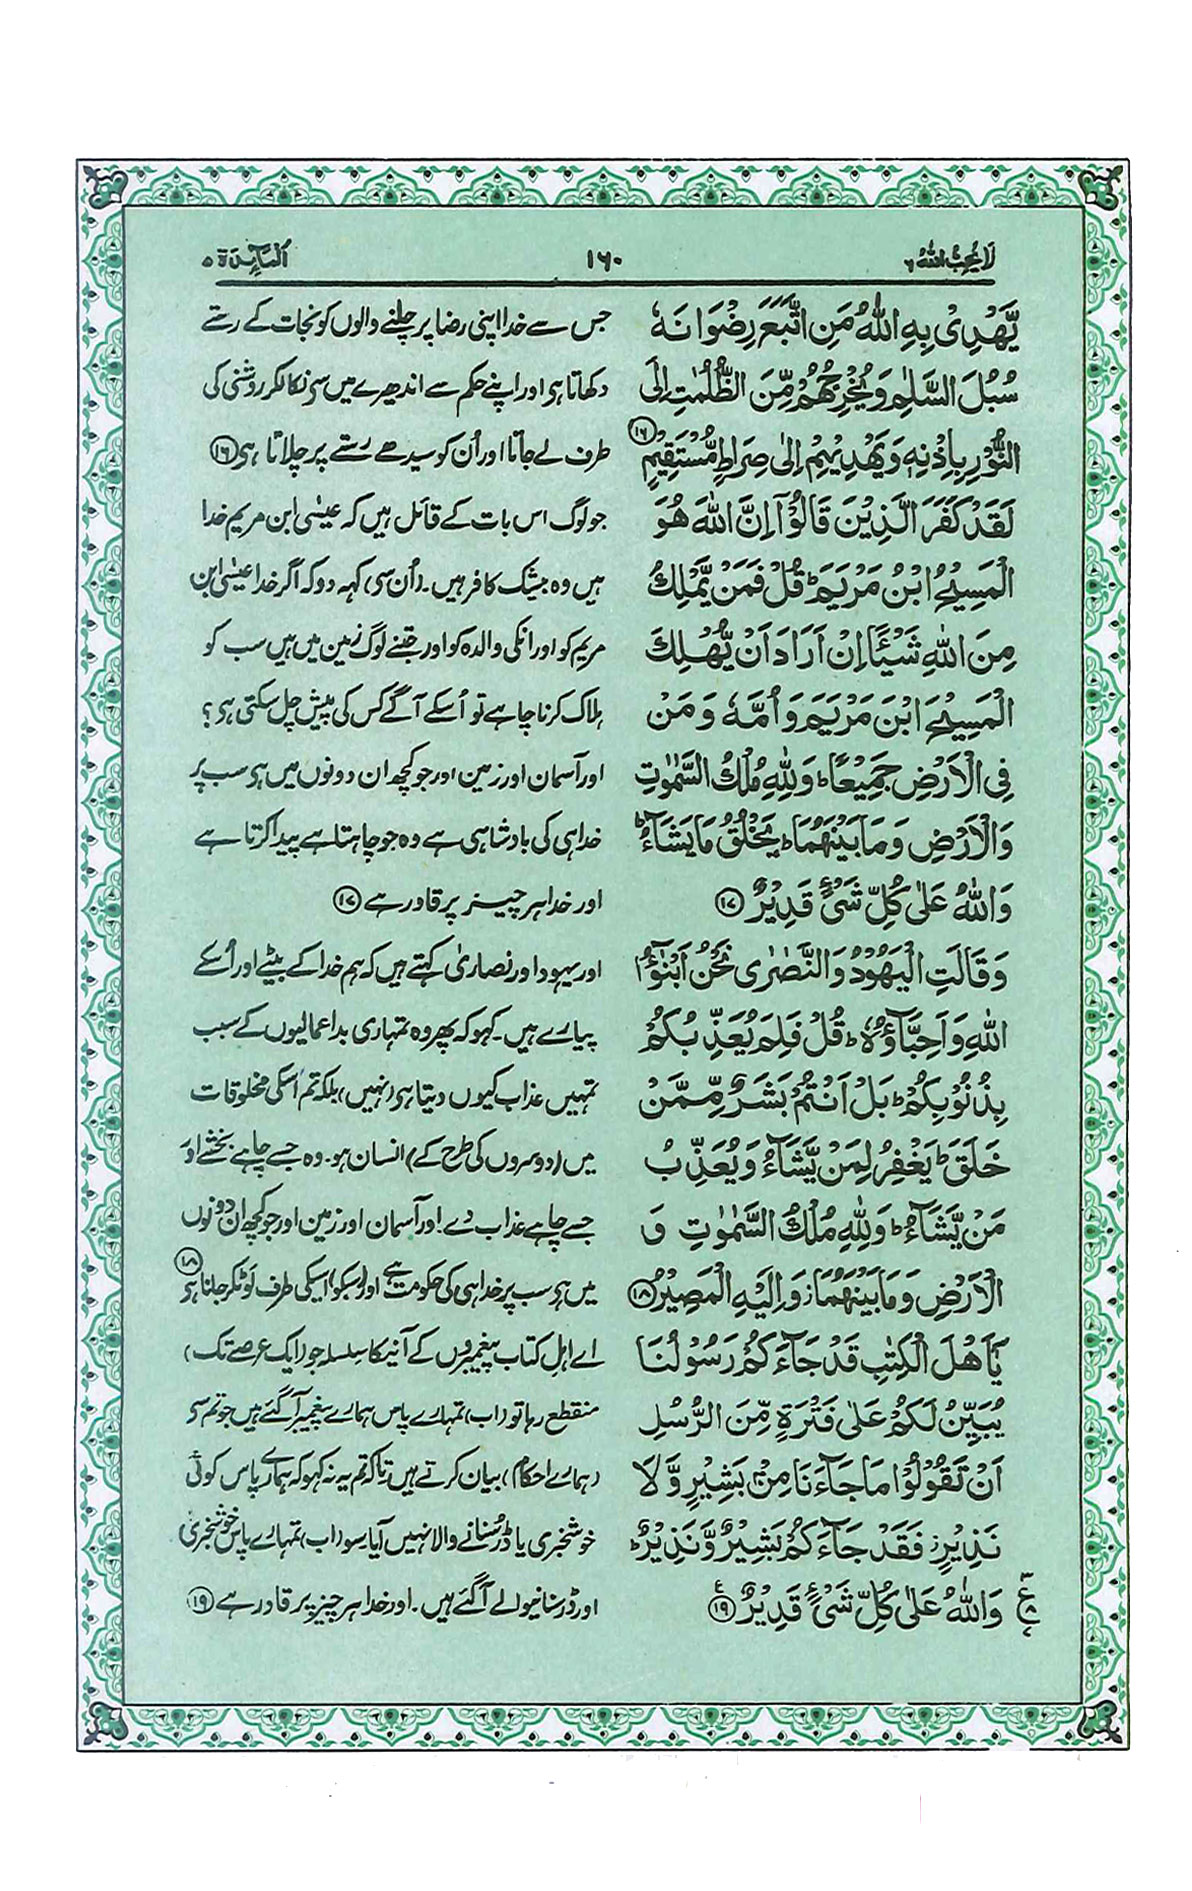 لَا یُحِبُّ اللّٰهُ ۶
۱۶۰
اَلْمَآئِدَة ۵
یَّهْدِیْ بِهِ اللّٰهُ مَنِ اتَّبَعَ رِضْوَانَهٗ
سُبُلَ السَّلٰمِ وَیُخْرِجُهُمْ مِّنَ الظُّلُمٰتِ اِلَی
النُّوْرِ بِاِذْنِهٖ وَیَهْدِیْهِمْ اِلٰی صِرَاطٍ مُّسْتَقِیْمٍ ۱۶
لَقَدْ كَفَرَ الَّذِیْنَ قَالُوْۤا اِنَّ اللّٰهَ هُوَ
الْمَسِیْحُ ابْنُ مَرْیَمَ ؕ قُلْ فَمَنْ یَّمْلِكُ
مِنَ اللّٰهِ شَیْـًٔا اِنْ اَرَادَ اَنْ یُّهْلِكَ
الْمَسِیْحَ ابْنَ مَرْیَمَ وَاُمَّهٗ وَمَنْ
فِی الْاَرْضِ جَمِیْعًا ؕ وَلِلّٰهِ مُلْكُ السَّمٰوٰتِ
وَالْاَرْضِ وَمَا بَیْنَهُمَا ؕ یَخْلُقُ مَا یَشَآءُ ؕ
وَاللّٰهُ عَلٰی كُلِّ شَیْءٍ قَدِیْرٌ ۱۷
وَقَالَتِ الْیَهُوْدُ وَالنَّصٰرٰی نَحْنُ اَبْنٰٓؤُا
اللّٰهِ وَاَحِبَّآؤُهٗ ؕ قُلْ فَلِمَ یُعَذِّبُكُمْ
بِذُنُوْبِكُمْ ؕ بَلْ اَنْتُمْ بَشَرٌ مِّمَّنْ
خَلَقَ ؕ یَغْفِرُ لِمَنْ یَّشَآءُ وَیُعَذِّبُ
مَنْ یَّشَآءُ ؕ وَلِلّٰهِ مُلْكُ السَّمٰوٰتِ وَ
الْاَرْضِ وَمَا بَیْنَهُمَا ؗ وَاِلَیْهِ الْمَصِیْرُ ۱۸
یٰۤاَهْلَ الْكِتٰبِ قَدْ جَآءَكُمْ رَسُوْلُنَا
یُبَیِّنُ لَكُمْ عَلٰی فَتْرَةٍ مِّنَ الرُّسُلِ
اَنْ تَقُوْلُوْا مَا جَآءَنَا مِنْۢ بَشِیْرٍ وَّلَا
نَذِیْرٍ ؗ فَقَدْ جَآءَكُمْ بَشِیْرٌ وَّنَذِیْرٌ ؕ
وَاللّٰهُ عَلٰی كُلِّ شَیْءٍ قَدِیْرٌ ۱۹
جس سے خدا اپنی رضا پر چلنے والوں کو نجات کے رستے
دکھاتا ہی اور اپنے حکم سے اندھیرے میں سی نکالکر روشنی کی
طرف لے جاتا اور اُن کو سیدھے رستے پر چلاتا ہی ۱۶
جو لوگ اس بات کے قائل ہیں کہ عیسٰی ابن مریم خدا
ہیں وہ بیشک کافر ہیں۔ (اُن سی) کہہ دو کہ اگر خدا عیسٰی ابن
مریم کو اور انکی والدہ کو اور جتنے لوگ زمین میں ہیں سب کو
ہلاک کرنا چاہے تو اُسکے آگے کس کی پیش چل سکتی ہی؟
اور آسمان اور زمین اور جو کچھ ان دونوں میں ہی سب پر
خدا ہی کی بادشاہی ہے وہ جو چاہتا ہے پیدا کرتا ہے
اور خدا ہر چیز پر قادر ہے ۱۷
اور یہود اور نصاریٰ کہتے ہیں کہ ہم خدا کے بیٹے اور اُسکے
پیارے ہیں۔ کہو کہ پھر وہ تمہاری بداعمالیوں کے سبب
تمہیں عذاب کیوں دیتا ہی (نہیں) بلکہ تم اُسکی مخلوقات
میں (دوسروں کی طرح کے) انسان ہو۔ وہ جسے چاہے بخشے اور
جسے چاہے عذاب دے۔ اور آسمان اور زمین اور جو کچھ ان دونوں
میں ہی سب پر خدا ہی کی حکومت ہے اور (سبکو) اُسیکی طرف لوٹکر جانا ہی ۱۸
اے اہلِ کتاب پیغمبروں کے آنیکا سلسلہ جو (ایک عرصے تک)
منقطع رہا تو (اب) تمہارے پاس ہمارے پیغمبر آ گئے ہیں جو تم سی
(ہمارے احکام) بیان کرتے ہیں تاکہ تم یہ نہ کہو کہ ہمارے پاس کوئی
خوشخبری یا ڈر سُنانے والا نہیں آیا۔ سو (اب) تمہارے پاس خوشخبری
اور ڈر سنانیوالے آ گئے ہیں۔ اور خدا ہر چیز پر قادر ہے ۱۹